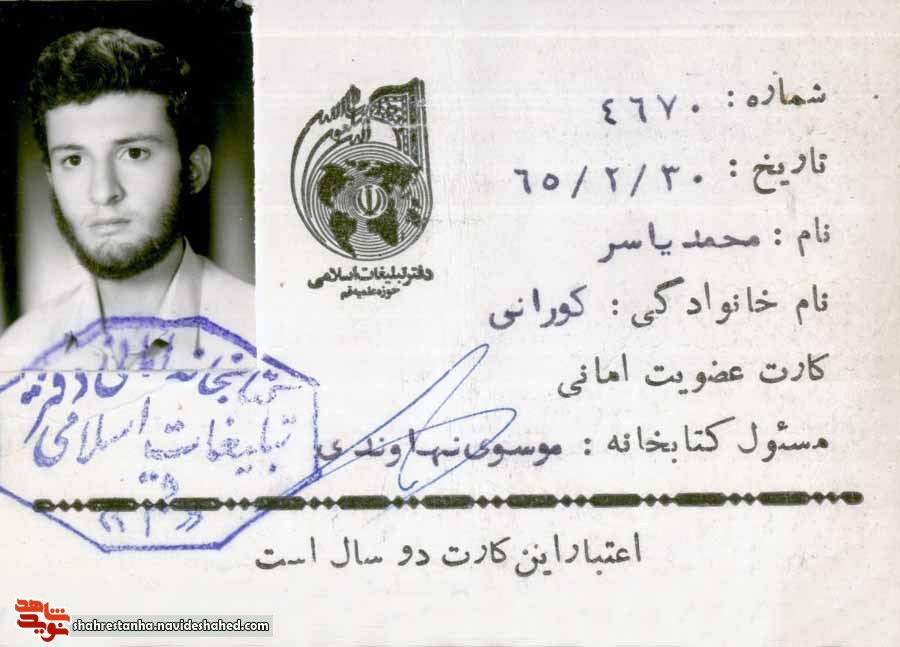 شماره : ٤٦٧٠
تاریخ : ٦٥/٢/٣٠
نام : محمد یاسر
نام خانوادگی : کورانی
کارت عضویت امانی
مسئول کتابخانه : موسوی نهاوندی
اعتبار این کارت دو سال است
دفتر تبلیغات اسلامی
حوزه علمیه قم
کتابخانه
دفتر
تبلیغات اسلامی
قم
شاهد
نوید
shahrestanha.navideshahed.com